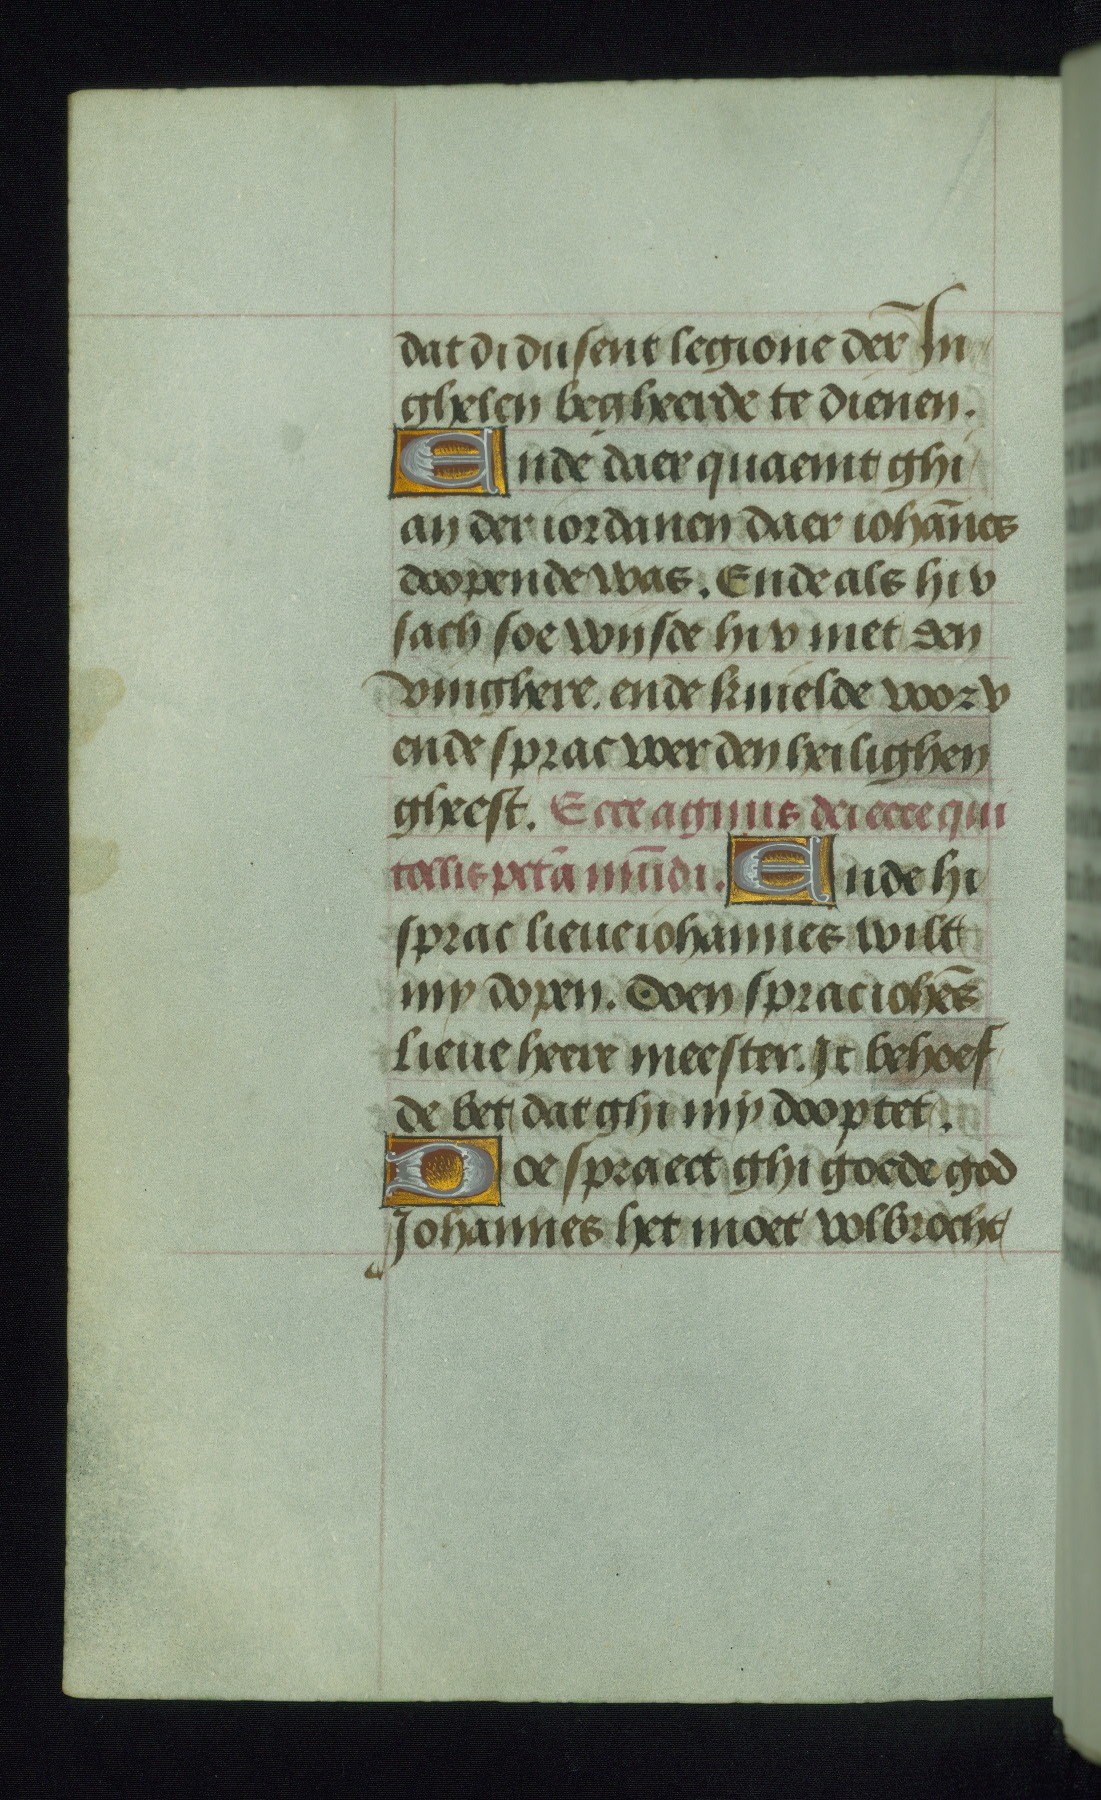 dat di dusent legione der In
ghelen begheerde te dienen.
Ende daer quaemt ghi
an der iordanen daer iohānes
doopende was. Ende als hi v
sach soe wijsde hi v met den
vinghere. ende knielde voor v
ende sprac wer den heilighen
gheest. Ecce agnus dei ecce qui
tollis pctā mūdi. Ende hi
sprac lieue iohannes wilt
my dopen. Doen sprac iohēs
Lieue heere meester. Ic behoef
de bet dat ghi my dooptet.
Doe spraect ghi goede god
Johannes het moet volbrocht